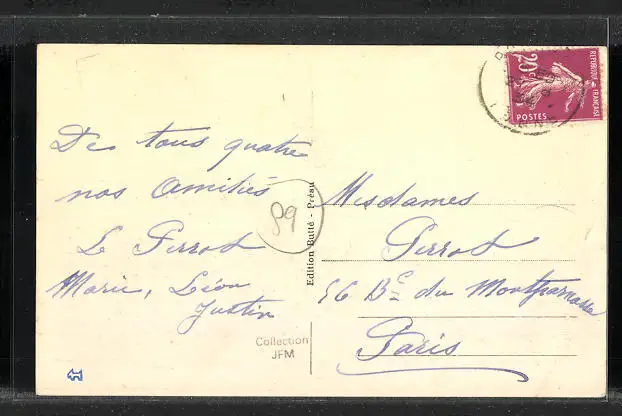 De tous quatre
nos amitiés
Le Perrot
Marie, Léon
Justin
89
Collection
JFM
Edition Butté - Préau
Mesdames
Perrot
56 Bd du Montparnasse
Paris
20c
POSTES
REPUBLIQUE FRANÇAISE